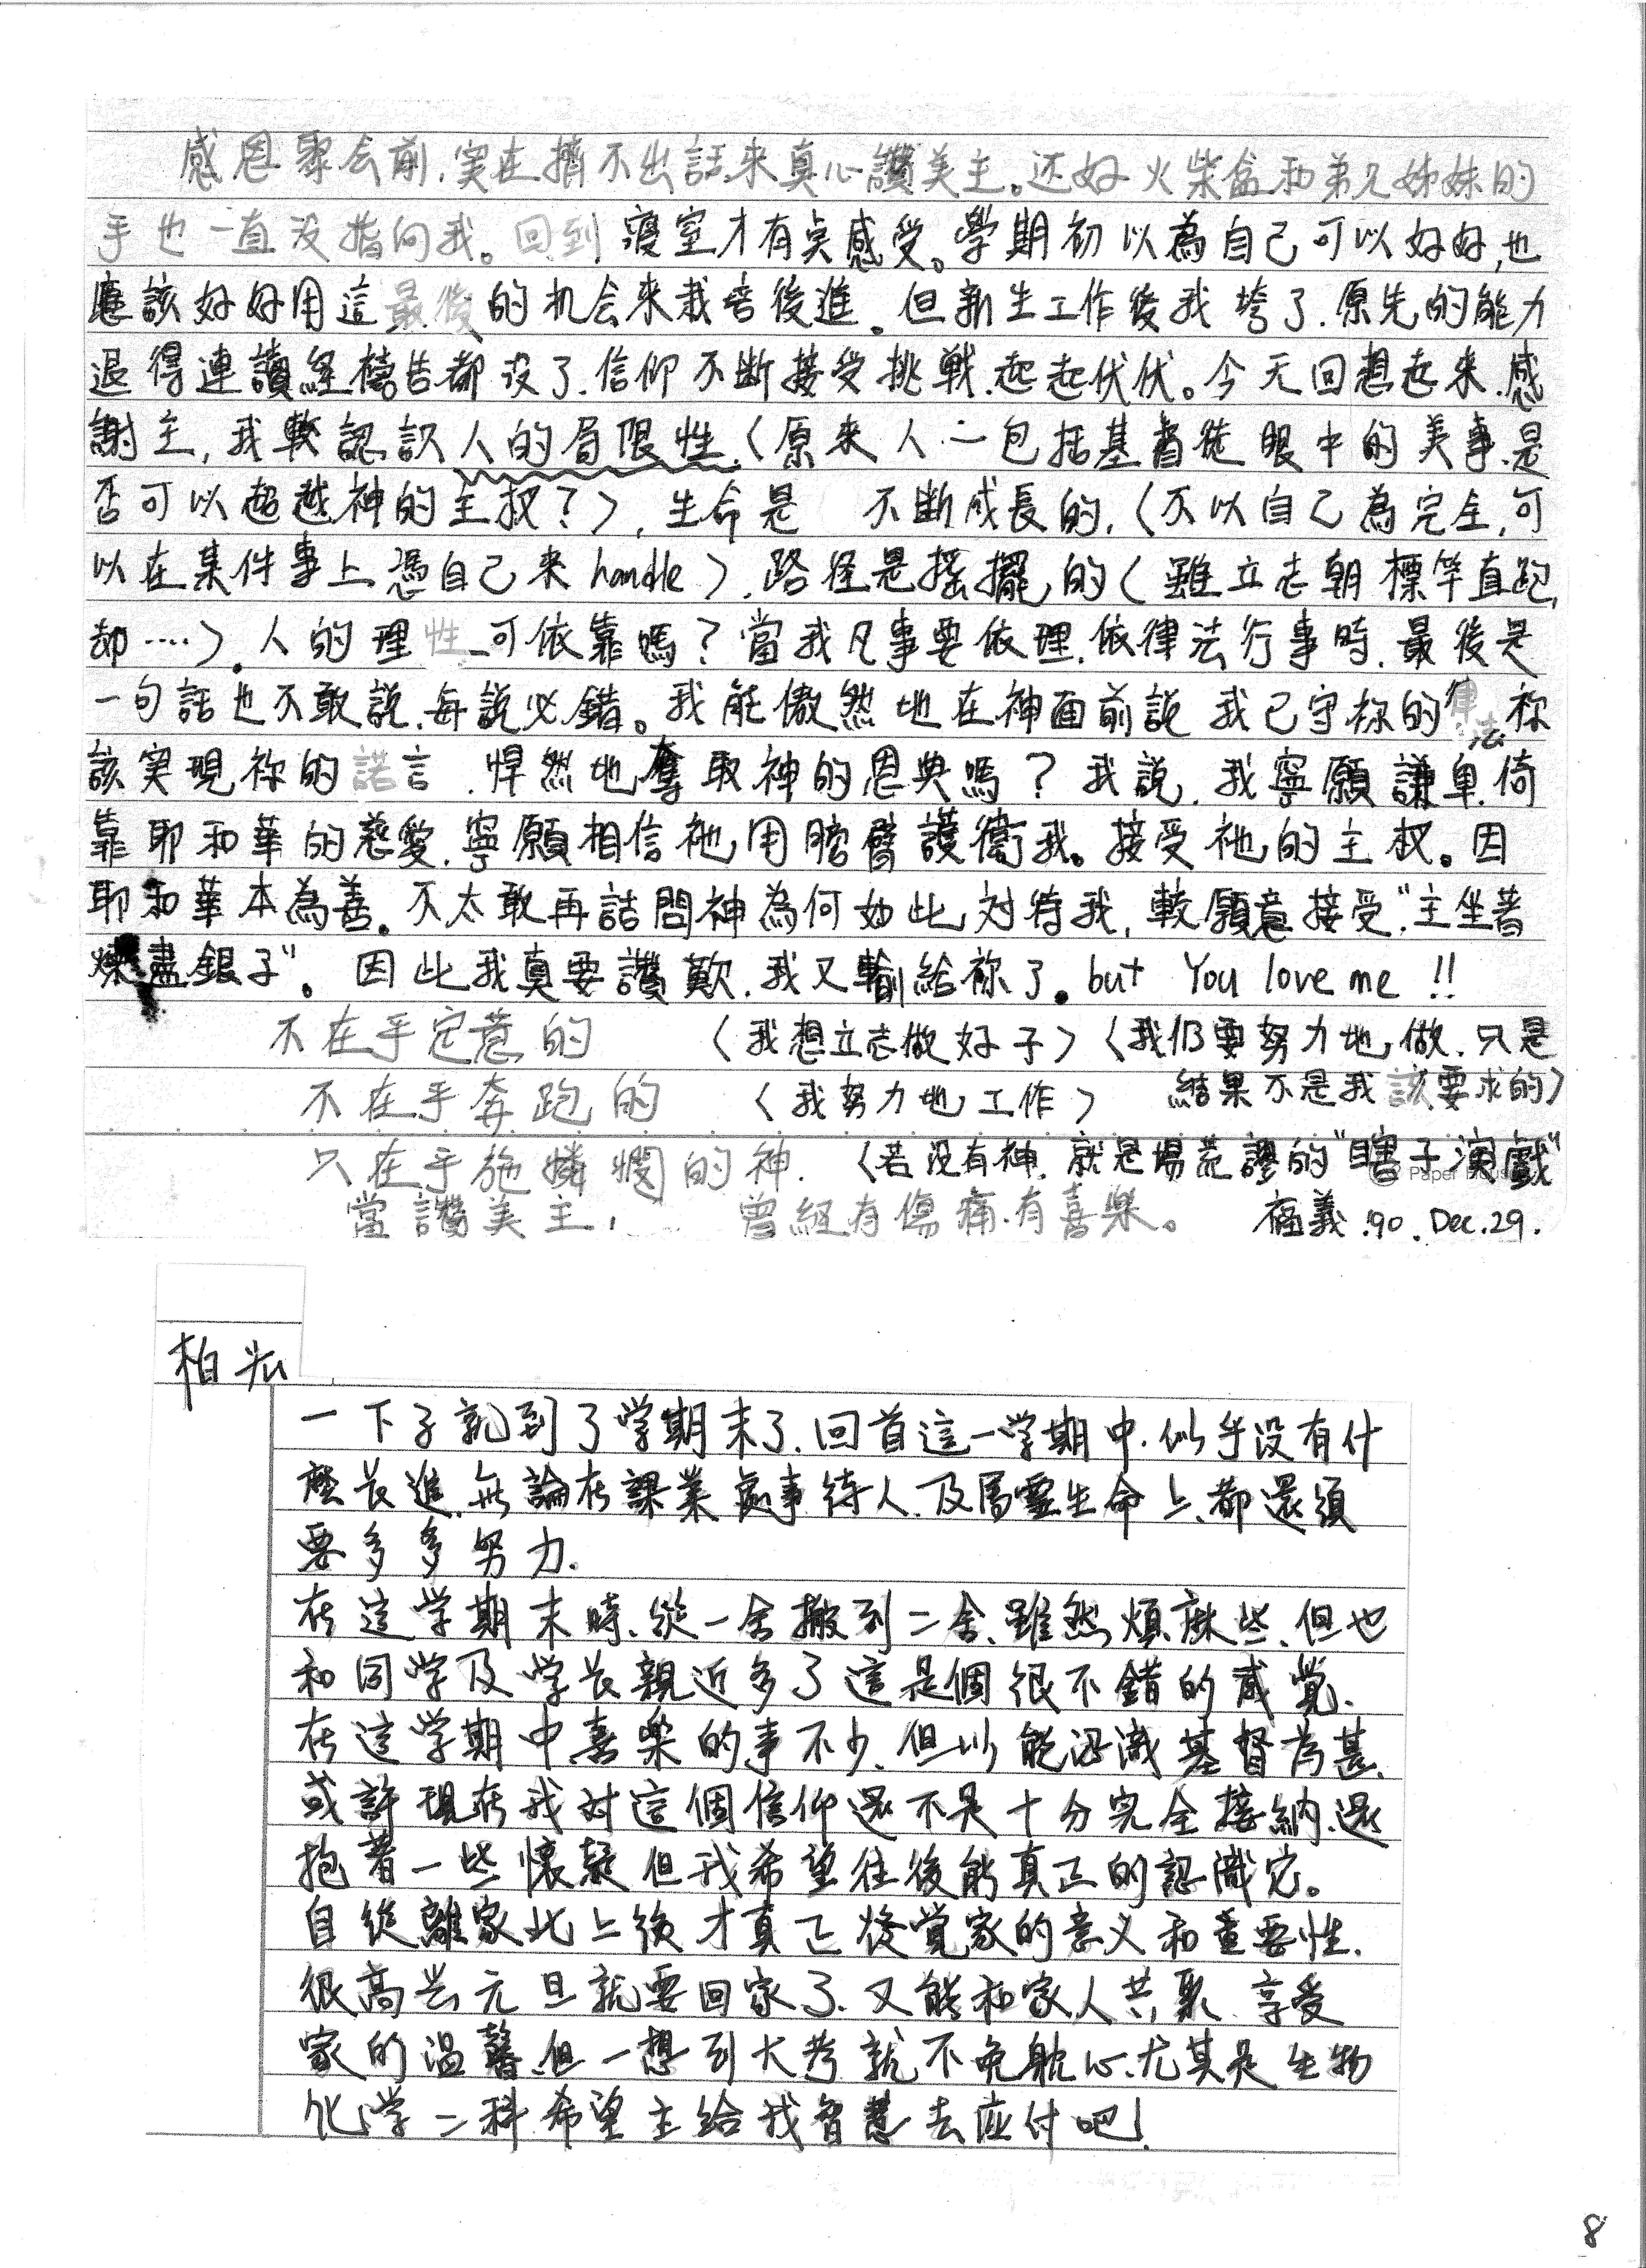 感恩聚会前,実在擠不出話来真心讚美主。还好火柴盒和弟兄姊妹的
手也一直没指向我。回到寢室才有点感受。學期初以為自己可以好好,也
應該好好用這最後的机会来栽培後進。但新生工作後我垮了.原先的能力
退得連讀経禱告都没了.信仰不断接受挑戦.起起伏伏。今天回想起来.感
謝主,我較認訳人的局限性.(原来人——包括基督徒眼中的美事.是
否可以超越神的主权?),生命是 不断成長的,(不以自己為完全,可
以在某件事上憑自己来handle).路径是搖擺的(雖立志朝標竿直跑,
却‥‥).人的理性可依靠嗎?當我凡事要依理.依律法行事時.最後是
一句話也不敢說.每說必錯。我能傲然地在神面前說 我已守祢的律法 祢
該実現祢的諾言.悍然地奪取神的恩典嗎?我說.我寧願謙卑.倚
靠耶和華的慈愛.寧願相信祂用膀臂護衛我。接受祂的主权。因
耶和華本為善.不太敢再詰問神為何如此対待我,較願意接受"主坐著
煉盡銀子"。因此我真要讚歎.我又輸給祢了。but You love me !!
不在乎定意的 (我想立志做好子)(我仍要努力地做.只是
不在乎奔跑的 (我努力地工作) 結果不是我該要求的)
只在乎施憐憫的神. (若没有神.就是場荒謬的"瞎子演戲"
Paper
當讚美主, 曾経有傷痛.有喜樂。 福義 '90. Dec. 29.
柏宏
一下子就到了学期末了.回首這一学期中.似乎没有什
麼長進.無論在課業處事待人.及屬靈生命上都還須
要多多努力.
在這学期末時.從一舍搬到二舍.雖然煩麻些.但也
和同学及学長親近多了這是個很不錯的感覺.
在這学期中喜樂的事不少.但以能認識基督為甚.
或許現在我対這個信仰還不是十分完全接納.還
抱著一些懷疑但我希望往後能真正的認識它。
自從離家北上後才真正發覺家的意义和重要性.
很高兴元旦就要回家了.又能和家人共聚.享受
家的温馨.但一想到大考就不免躭心.尤其是生物
化学二科希望主給我智慧去应付吧!
8